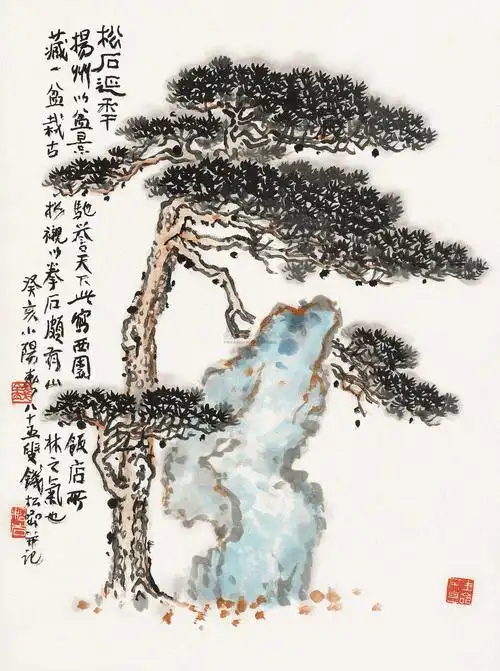 松石延年
揚州以盆景馳譽天下此寫西園飯店所
藏一盆栽古松襯以拳石頗有山林之氣也
癸亥小陽春八十五叟錢松嵒并記